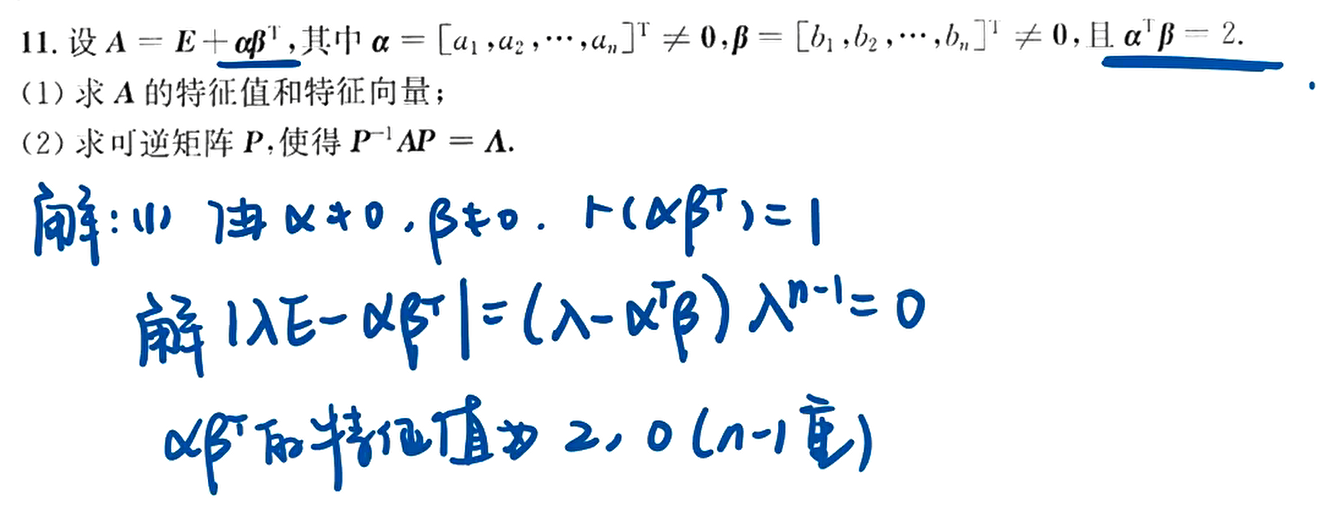 11. 设 A = E + αβᵀ,其中 α = [a₁,a₂,⋯,aₙ]ᵀ ≠ 0,β = [b₁,b₂,⋯,bₙ]ᵀ ≠ 0,且 αᵀβ = 2.
(1) 求 A 的特征值和特征向量;
(2) 求可逆矩阵 P,使得 P⁻¹AP = Λ.
解:(1) 由 α≠0,β≠0. r(αβᵀ)=1
解 |λE-αβᵀ|=(λ-αᵀβ)λⁿ⁻¹=0
αβᵀ的特征值为 2, 0 (n-1重)